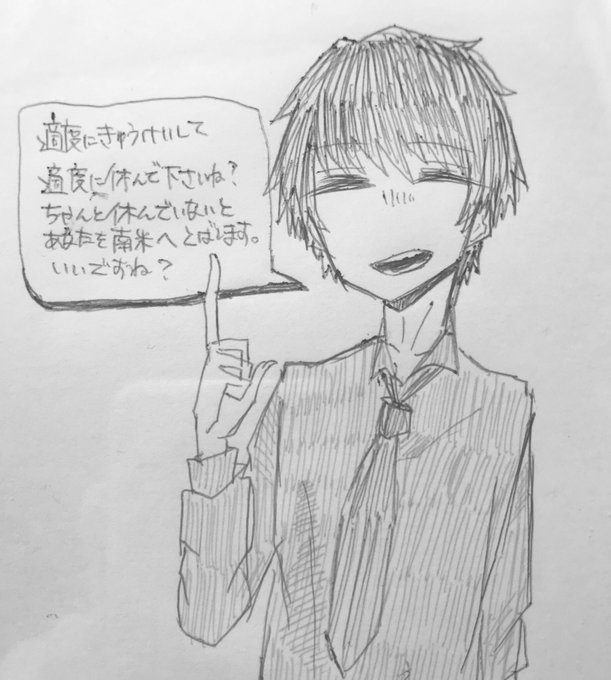 適度にきゅうけいして
適度に休んで下さいね?
ちゃんと休んでいないと
あなたを南米へとばします。
いいですね?